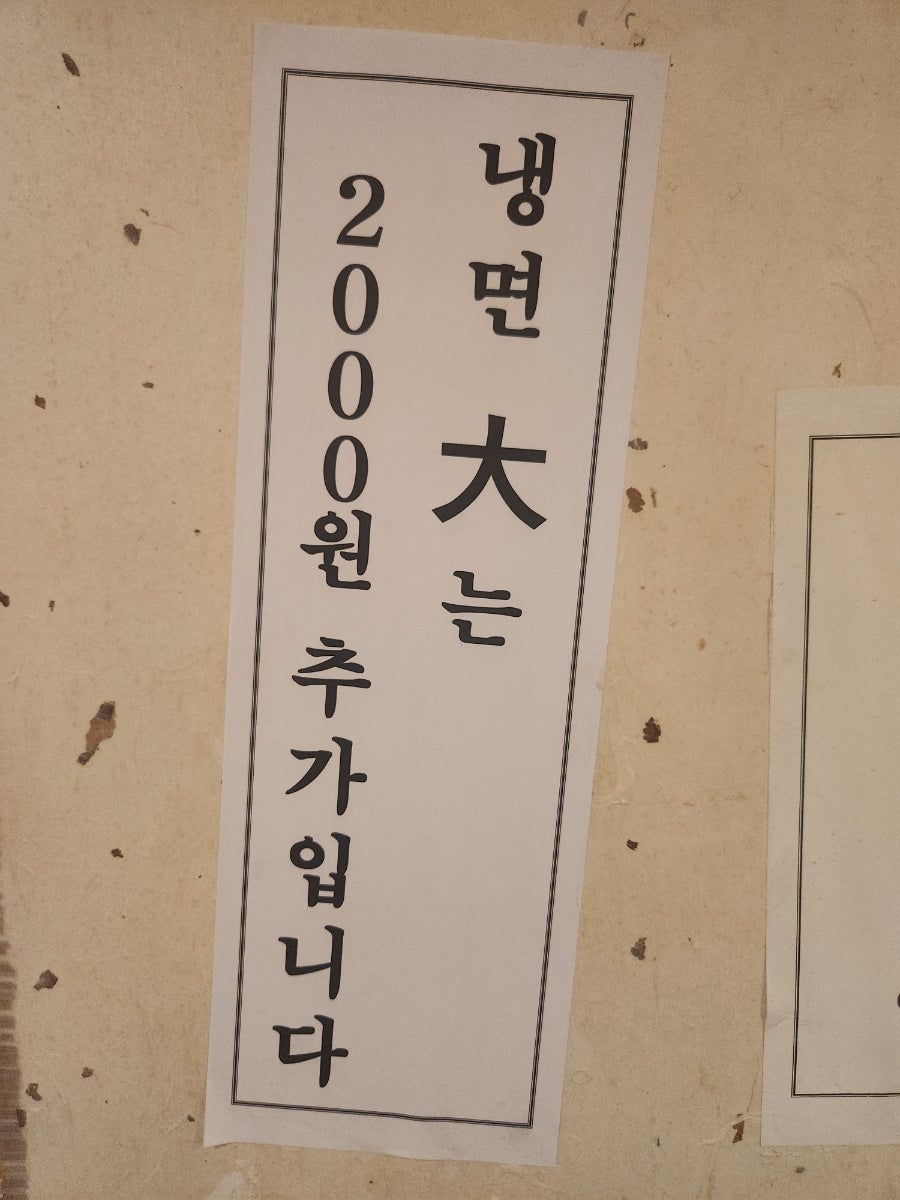 냉면 大는
2000원 추가입니다